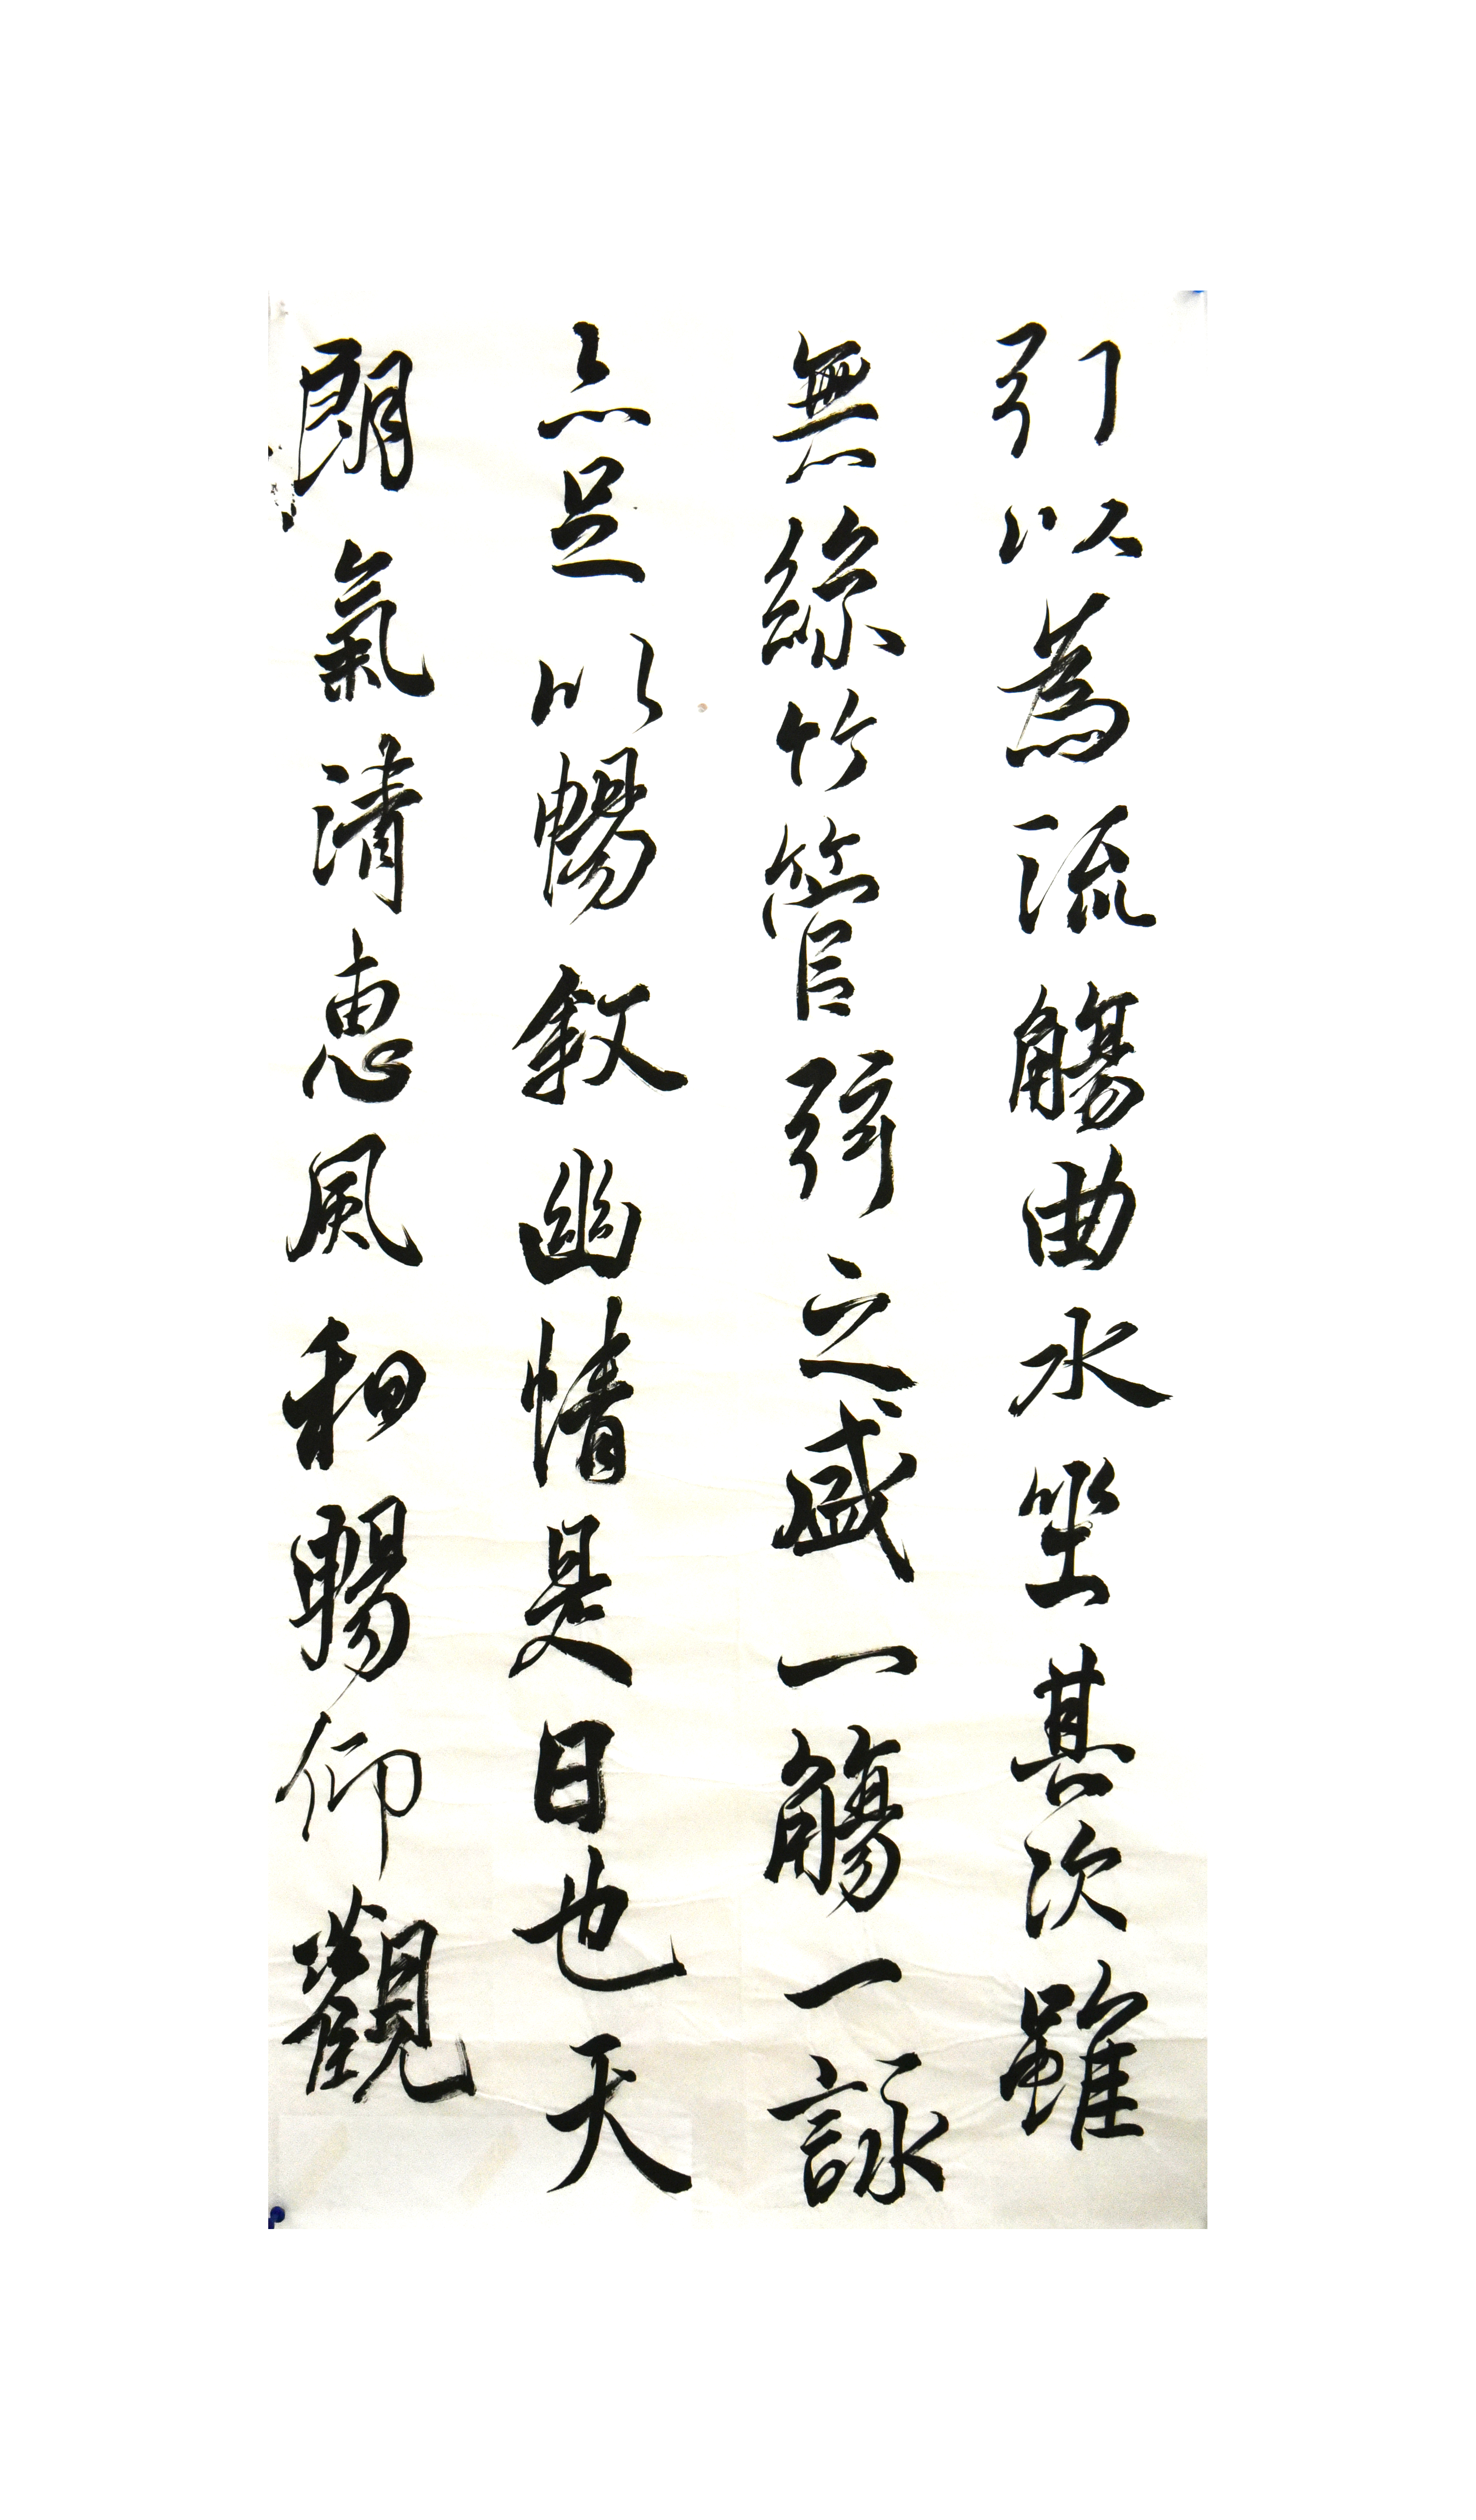 引以為流觴曲水坐其次雖
無絲竹管弦之盛一觴一詠
亦足以暢敘幽情是日也天
朗氣清惠風和暢仰觀